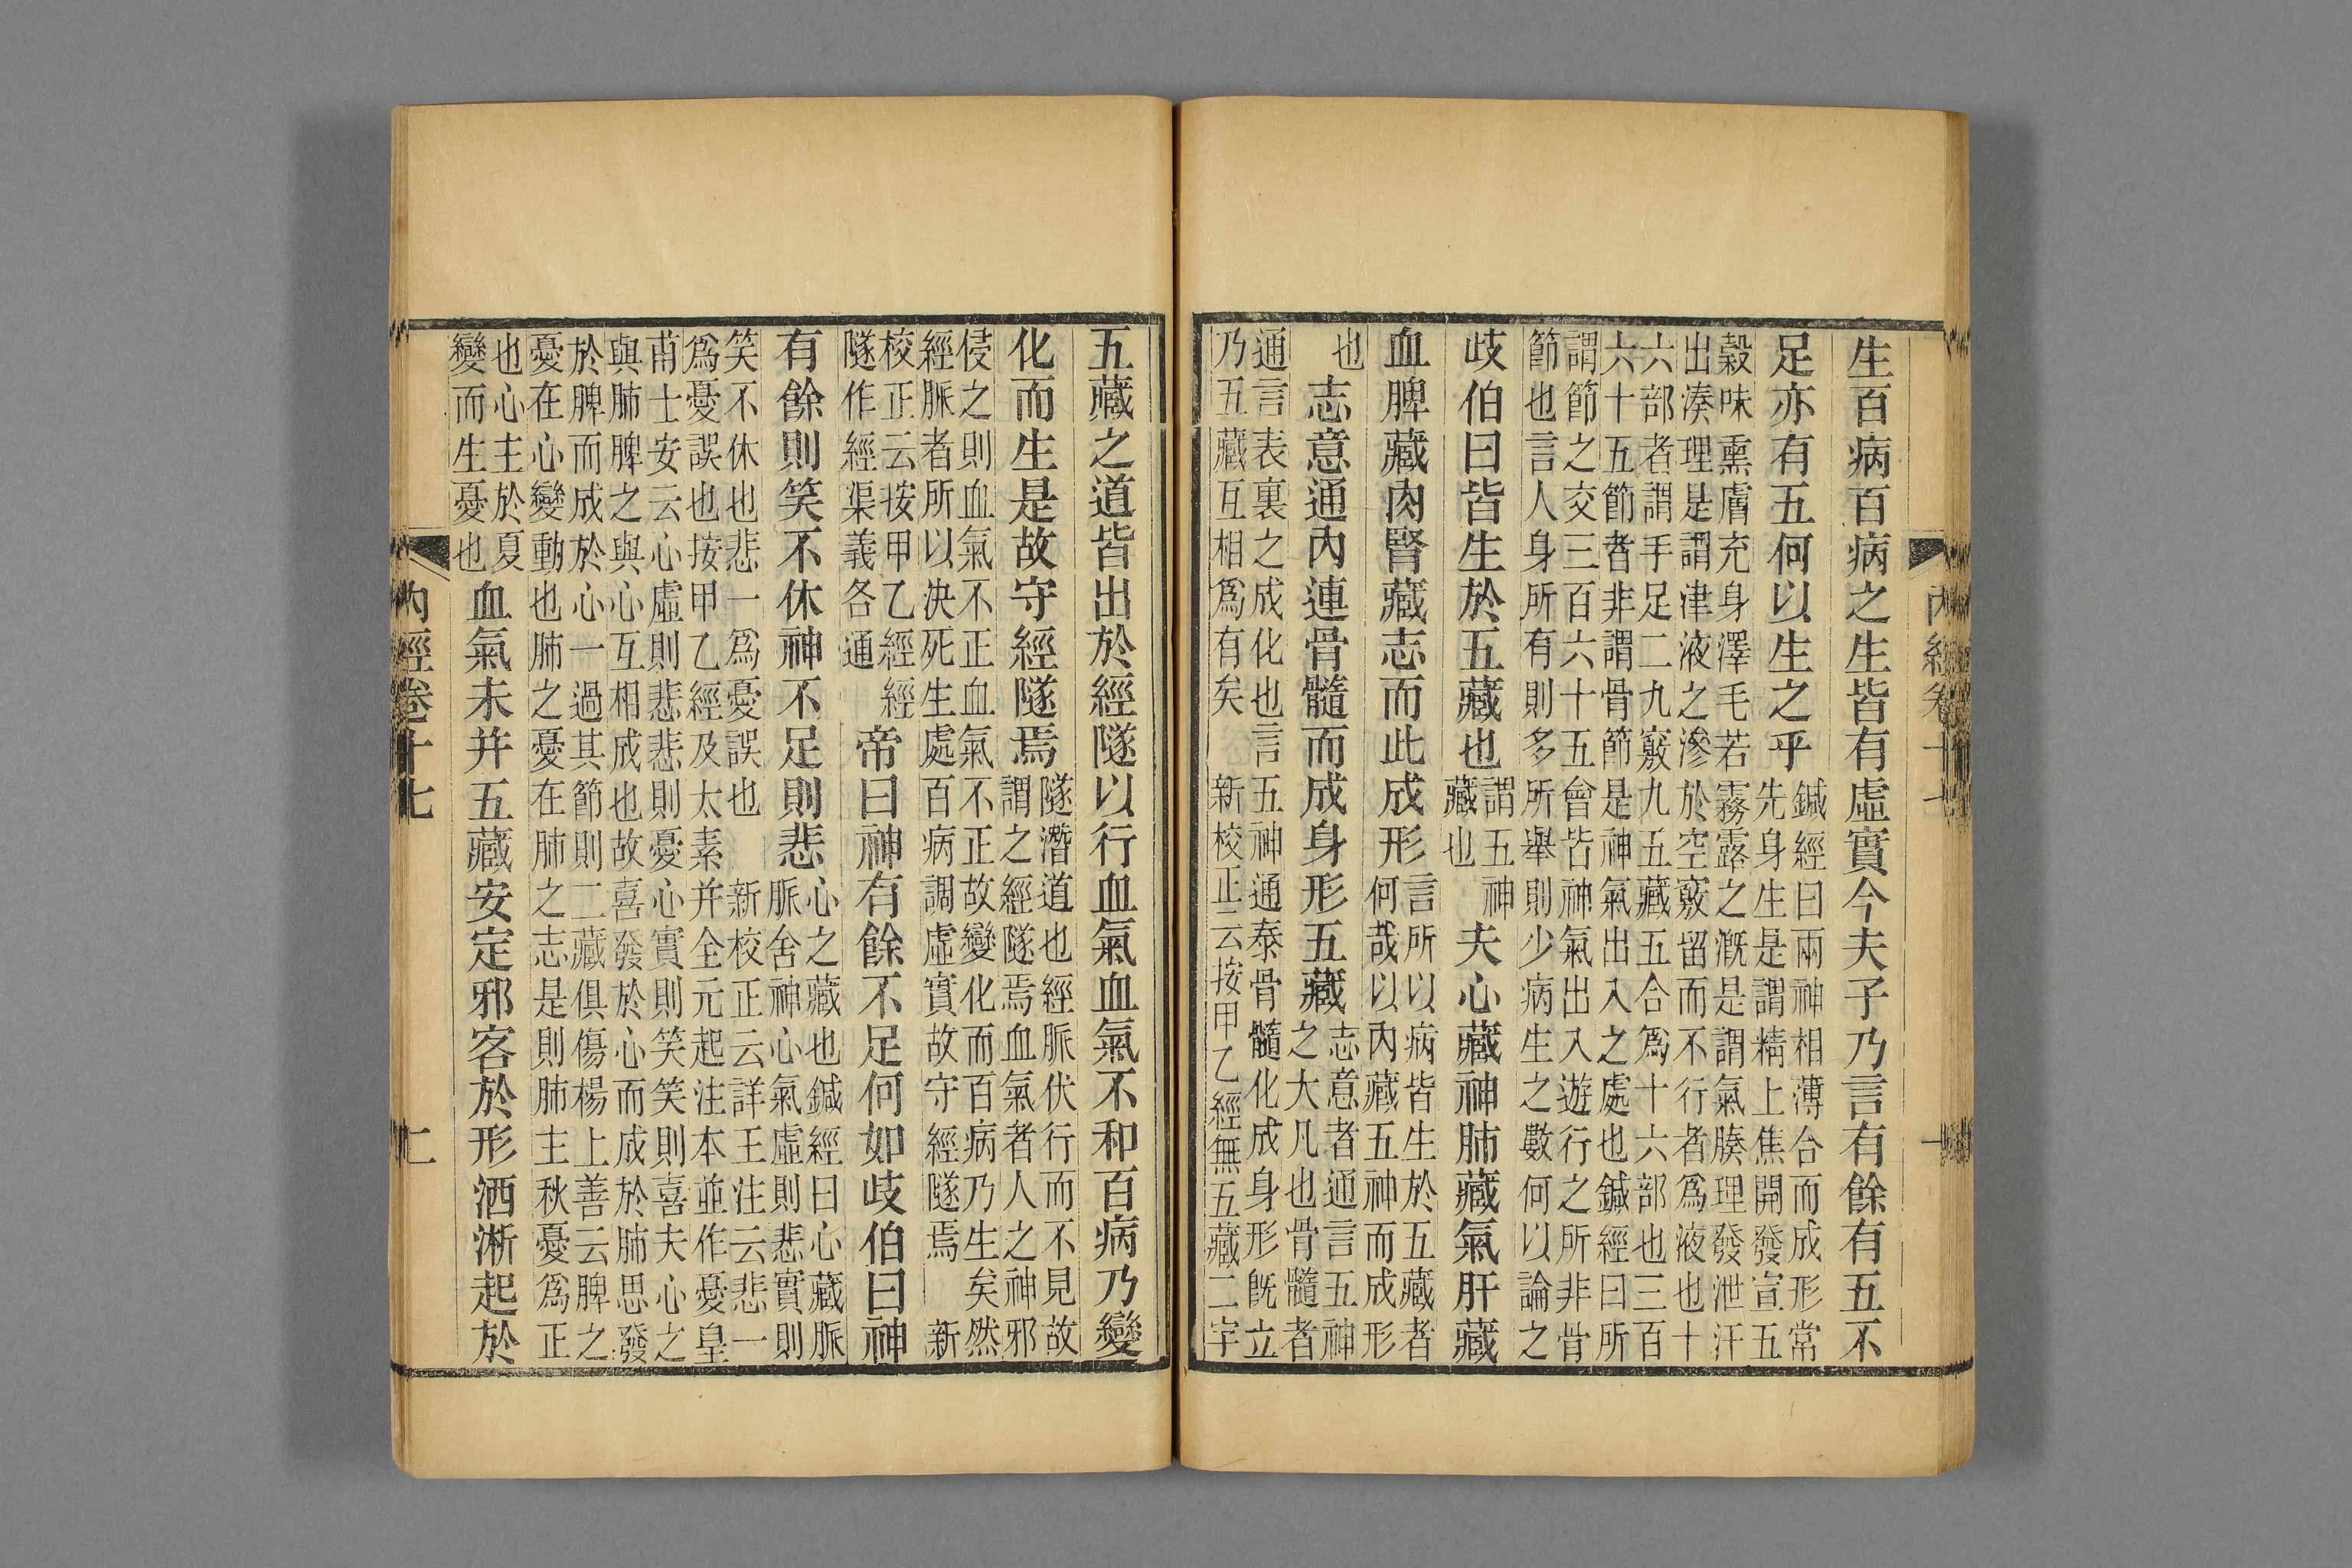 內經卷十七 一
生百病百病之生皆有虛實今夫子乃言有餘有五不
足亦有五何以生之乎
鍼經曰兩神相薄合而成形常
先身生是謂精上焦開發宣五
穀味熏膚充身澤毛若霧露之漑是謂氣腠理發泄汗
出湊理是謂津液之滲於空竅留而不行者爲液也十
六部者謂手足二九竅九五藏五合爲十六部也三百
六十五節者非謂骨節是神氣出入之處也鍼經曰所
謂節之交三百六十五會皆神氣出入遊行之所非骨
節也言人身所有則多所舉則少病生之數何以論之
歧伯曰皆生於五藏也
謂五神
藏也
夫心藏神肺藏氣肝藏
血脾藏肉腎藏志而此成形
言所以病皆生於五藏者
何哉以內藏五神而成形
也
志意通內連骨髓而成身形五藏
志意者通言五神
之大凡也骨髓者
通言表裏之成化也言五神通泰骨髓化成身形旣立
乃五藏互相爲有矣 新校正云按甲乙經無五藏二字
五藏之道皆出於經隧以行血氣血氣不和百病乃變
化而生是故守經隧焉
隧潛道也經脈伏行而不見故
謂之經隧焉血氣者人之神邪
侵之則血氣不正血氣不正故變化而百病乃生矣然
經脈者所以決死生處百病調虛實故守經隧焉 新
校正云按甲乙經經
隧作經渠義各通
帝曰神有餘不足何如歧伯曰神
有餘則笑不休神不足則悲
心之藏也鍼經曰心藏脈
脈舍神心氣虛則悲實則
笑不休也悲一爲憂誤也 新校正云詳王注云悲一
爲憂誤也按甲乙經及太素并全元起注本並作憂皇
甫士安云心虛則悲悲則憂心實則笑笑則喜夫心之
與肺脾之與心互相成也故喜發於心而成於肺思發
於脾而成於心一過其節則二藏俱傷楊上善云脾之
憂在心變動也肺之憂在肺之志是則肺主秋憂爲正
也心主於夏
變而生憂也
血氣未并五藏安定邪客於形洒淅起於
內經卷十七 二